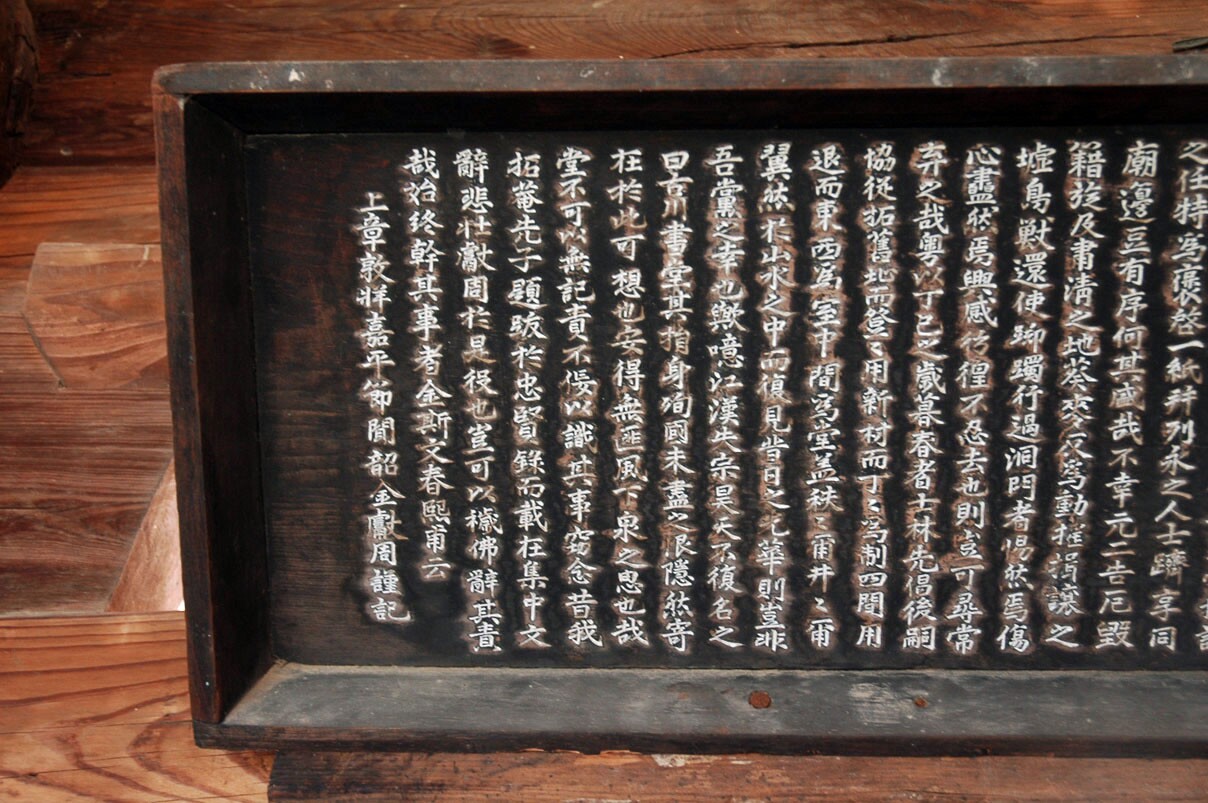 之任特寫褒啓一紙幷列永之人士躋享同
廟邊豆有序何其盛哉不幸元二告厄毀
籍旋及肅清之地葵麥交爲動摧揖讓之
墟鳥獸還使躑躅行過洞門者惕然焉傷
心盡然焉興感彷徨不忍去也則豈可尋常
弃之哉粤以丁巳之歲暮春者士林先倡後嗣
協從拓舊址而簦〻用新材而丁〻爲制四閒用
退而東西爲室中間爲堂盖秩〻爾井〻爾
翼然於山水之中而復見昔日之光華則豈非
吾黨之幸也歟噫江漢失宗昊天不復名之
曰吾川書堂其指身殉國未盡之恨隱然寄
在於此可想也安得無匪風下泉之思也哉
堂不可以無記責不佞以識其事窃念昔我
拓菴先子題跋於忠賢錄而載在集中文
辭悲壮獻周於是役也豈可以穢佛辭其責
哉始終幹其事者金斯文春熙甫云
上章敦牂嘉平節聞韶金獻周謹記